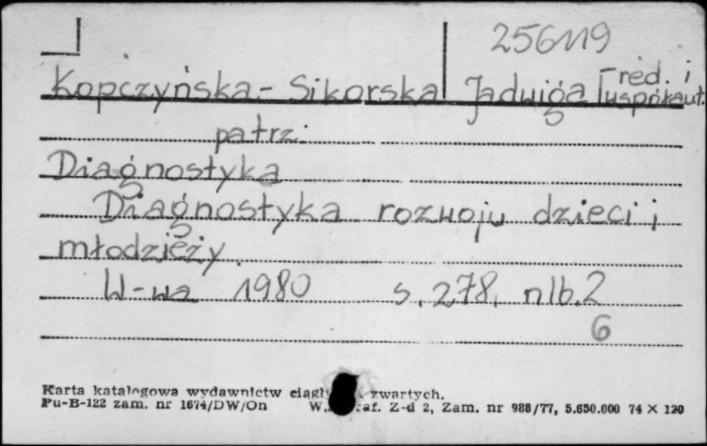 256119
Kopczyńska-Sikorska Jadwiga [red. i
współaut.
patrz:
Diagnostyka
Diagnostyka rozwoju dzieci i
młodzieży.
W-wa 1980 s. 278, nlb. 2
6
Karta katalogowa wydawnictw ciągł zwartych.
Pu-B-122 zam. nr 1674/DW/On W. af. Z-d 2, Zam. nr 988/77, 5.650.000 74 X 120